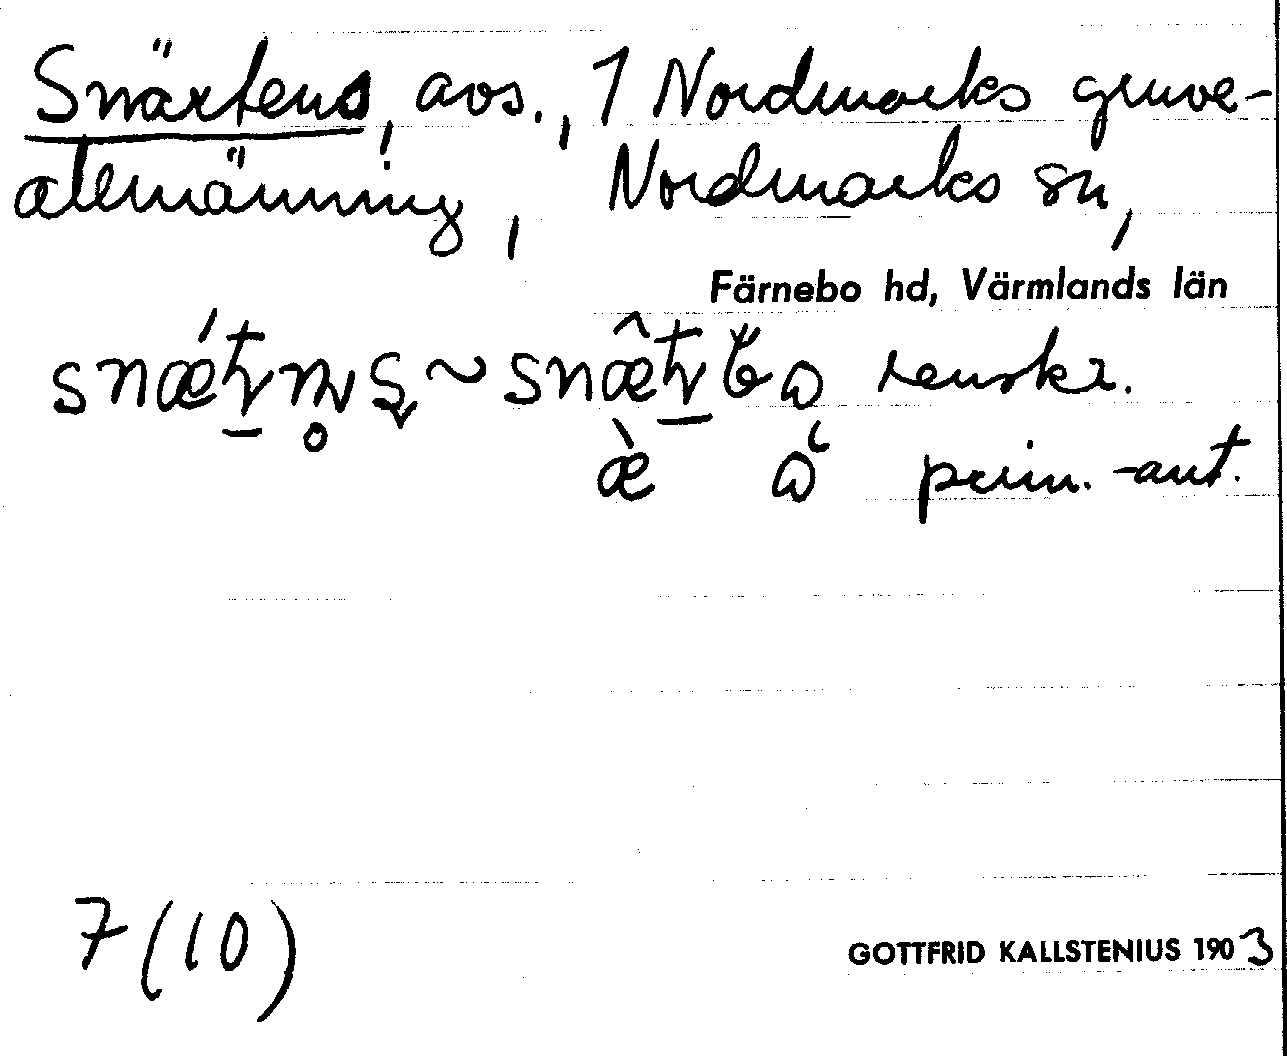 Snärtens, avs., 1 Nordmarks gruve-
allmänning, Nordmarks sn,
Färnebo hd, Värmlands län
renskr.
æ̀ prim.-ant.
7 (10)
GOTTFRID KALLSTENIUS 1903